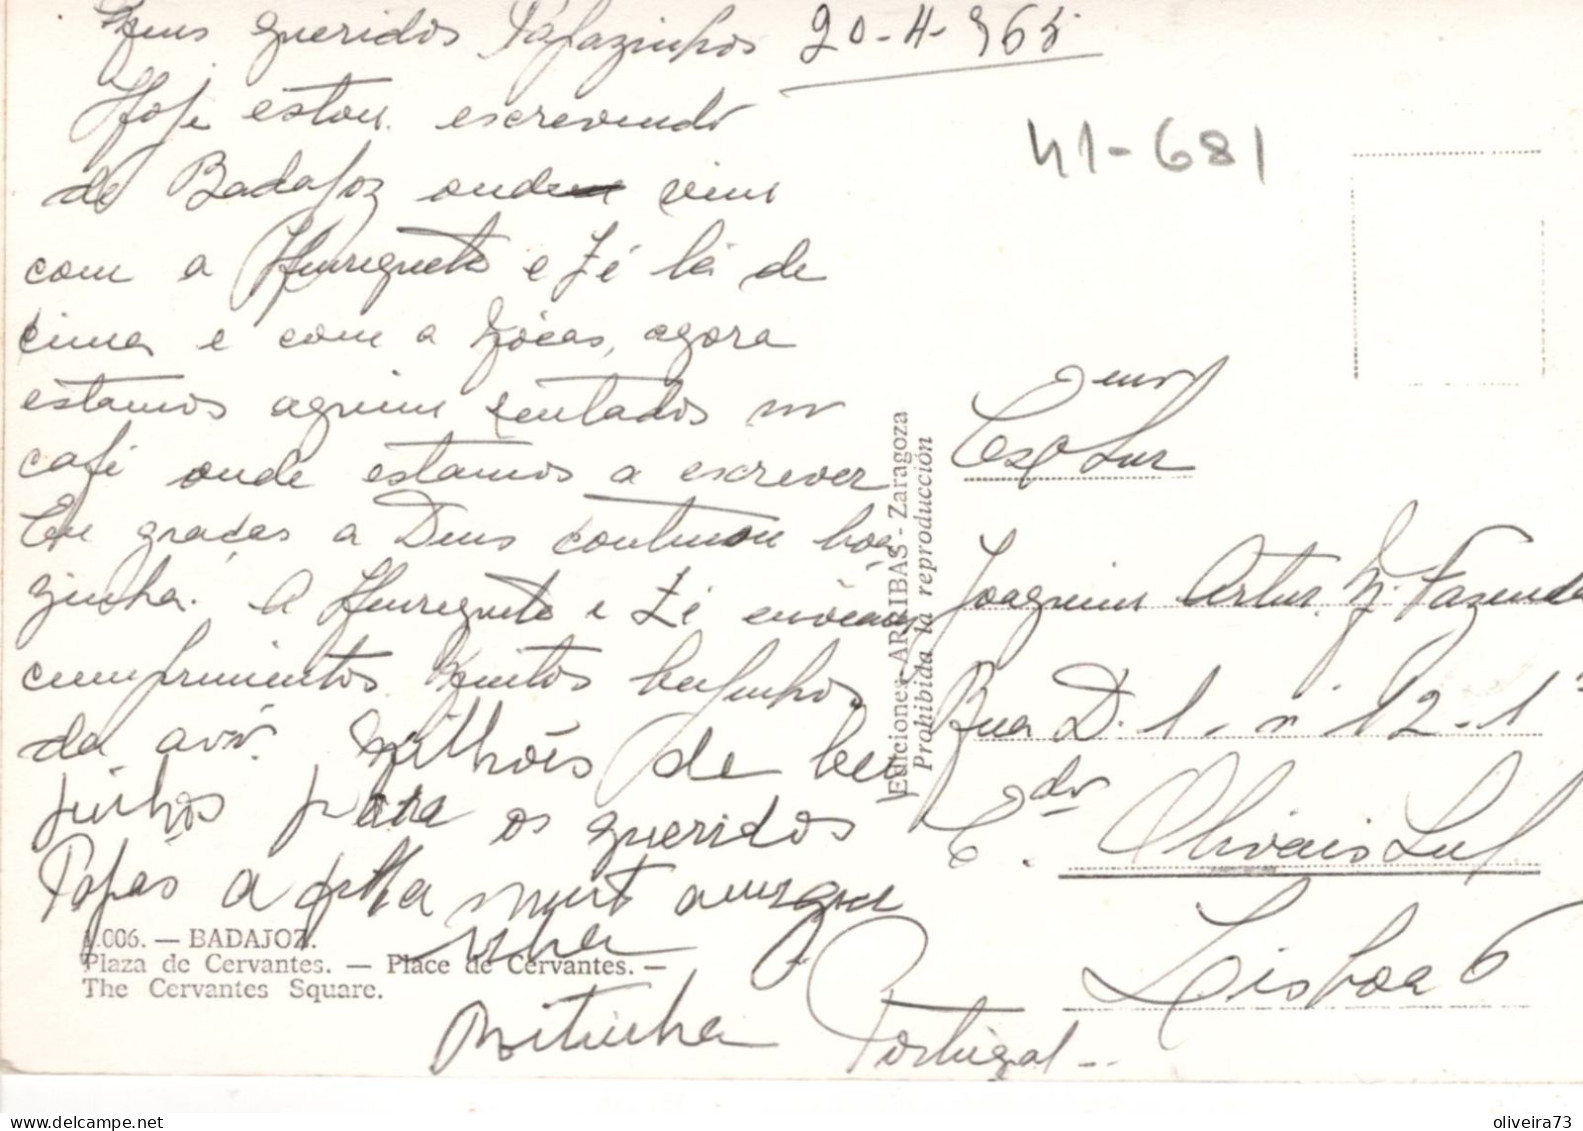 Meus queridos Papazinhos 20-4-965
Hoje estou escrevendo
de Badajoz onde vim
com a Henriqueta e Zé lá de
cima e com a Zócas, agora
estamos aquim sentados no
café onde estamos a escrever
Eu graças a Deus continuou boa
zinha. A Henriqueta e Zé enviam
cumprimentos Muitos beijinhos
da avó. Milhões de bei
jinhos para os queridos
Papás a filha muit amigui
nha
41-681
Exmo Snr
Joaquim Artur M. Fazenda
Rua D. 1, nº 12-1º
C. dos Olivais Sul
Lisboa 6
Portugal
Ediciones ARRIBAS - Zaragoza
Prohibida la reproducción
1.006. — BADAJOZ.
Plaza de Cervantes. — Place de Cervantes. —
The Cervantes Square.
oliveira73
www.delcampe.net